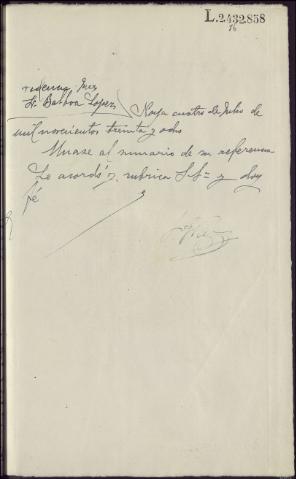 L.2.432.858
16
Juez
Sr. Barbra Lopez / Noya cuatro de Julio de
mil novecientos treinta y dos
Unase al sumario de su referencia
Lo acordó y rubrica S.Sª y doy
fé